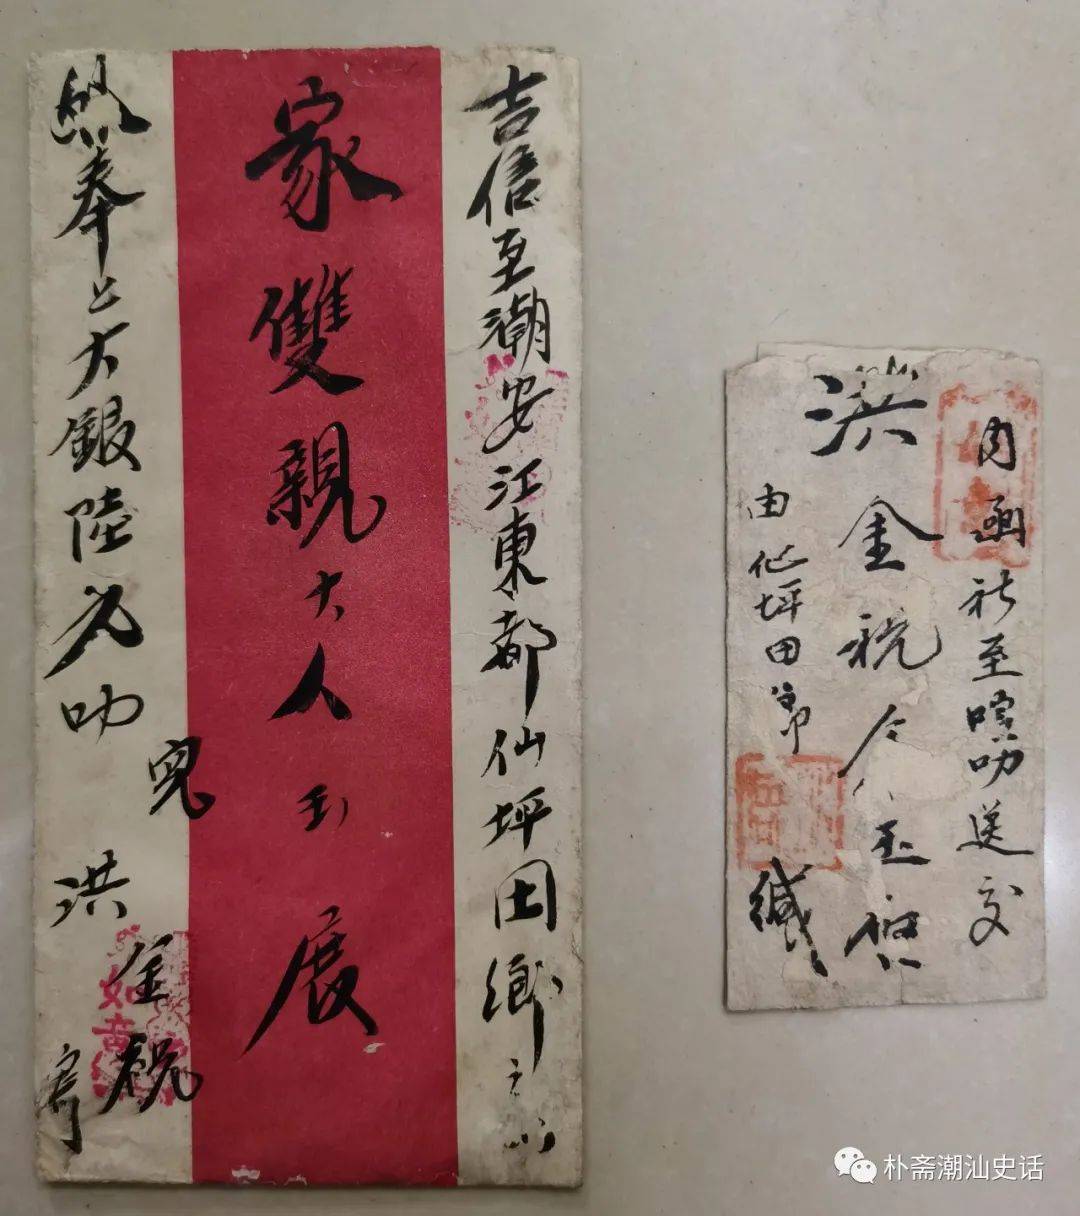 吉信至潮安江東都仙坪田鄉
家雙親大人玉展
奉上大銀陸元叻
兒洪金税寄
內函社至喧叻送交
洪金税令人玉
由仙坪田鄉緘
朴斋潮汕史话